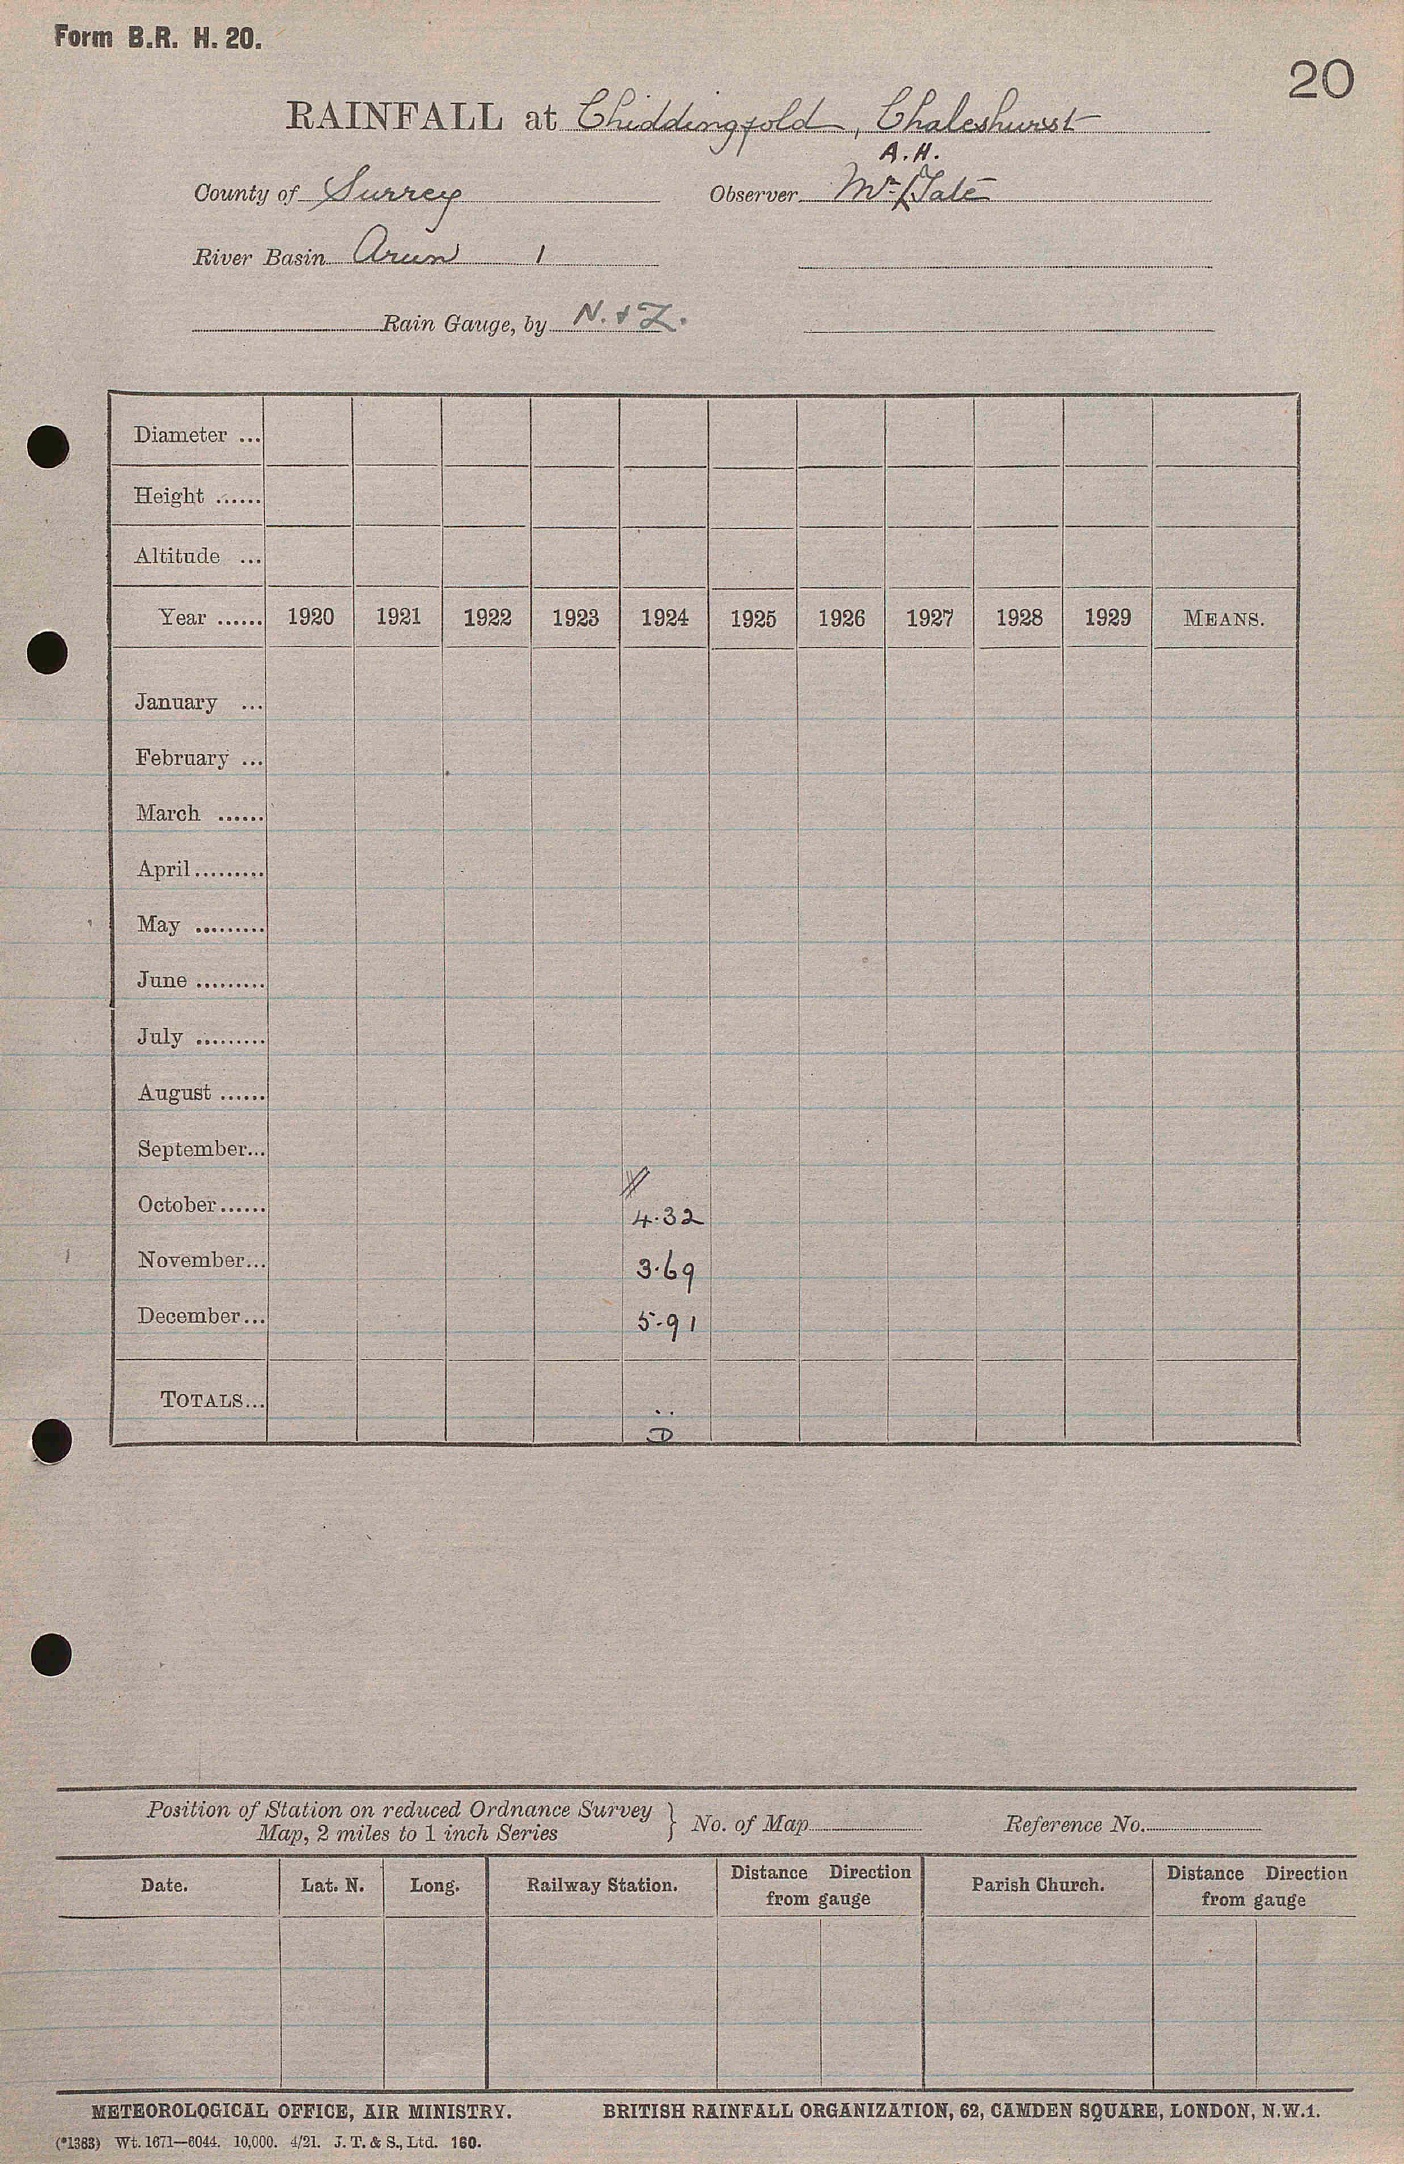 Form B.R. H. 20.
20
RAINFALL at Chiddingfold, Chaleshurst
A.H.
County of Surrey Observer Mr Tate
River Basin Arun 1
Rain Gauge, by N. & Z.
Diameter ...
Height ......
Altitude ...
Year ...... 1920 1921 1922 1923 1924 1925 1926 1927 1928 1929 MEANS.
January ...
February ...
March ......
April.........
May .........
June .........
July .........
August ......
September...
October...... 4.32
November... 3.69
December... 5.91
TOTALS... ..
D
Position of Station on reduced Ordnance Survey
Map, 2 miles to 1 inch Series } No. of Map Reference No.
Date. Lat. N. Long. Railway Station. Distance Direction from gauge Parish Church. Distance Direction from gauge
METEOROLOGICAL OFFICE, AIR MINISTRY. BRITISH RAINFALL ORGANIZATION, 62, CAMDEN SQUARE, LONDON, N.W.1.
(*1383) Wt. 1671—6044. 10,000. 4/21. J. T. & S., Ltd. 160.